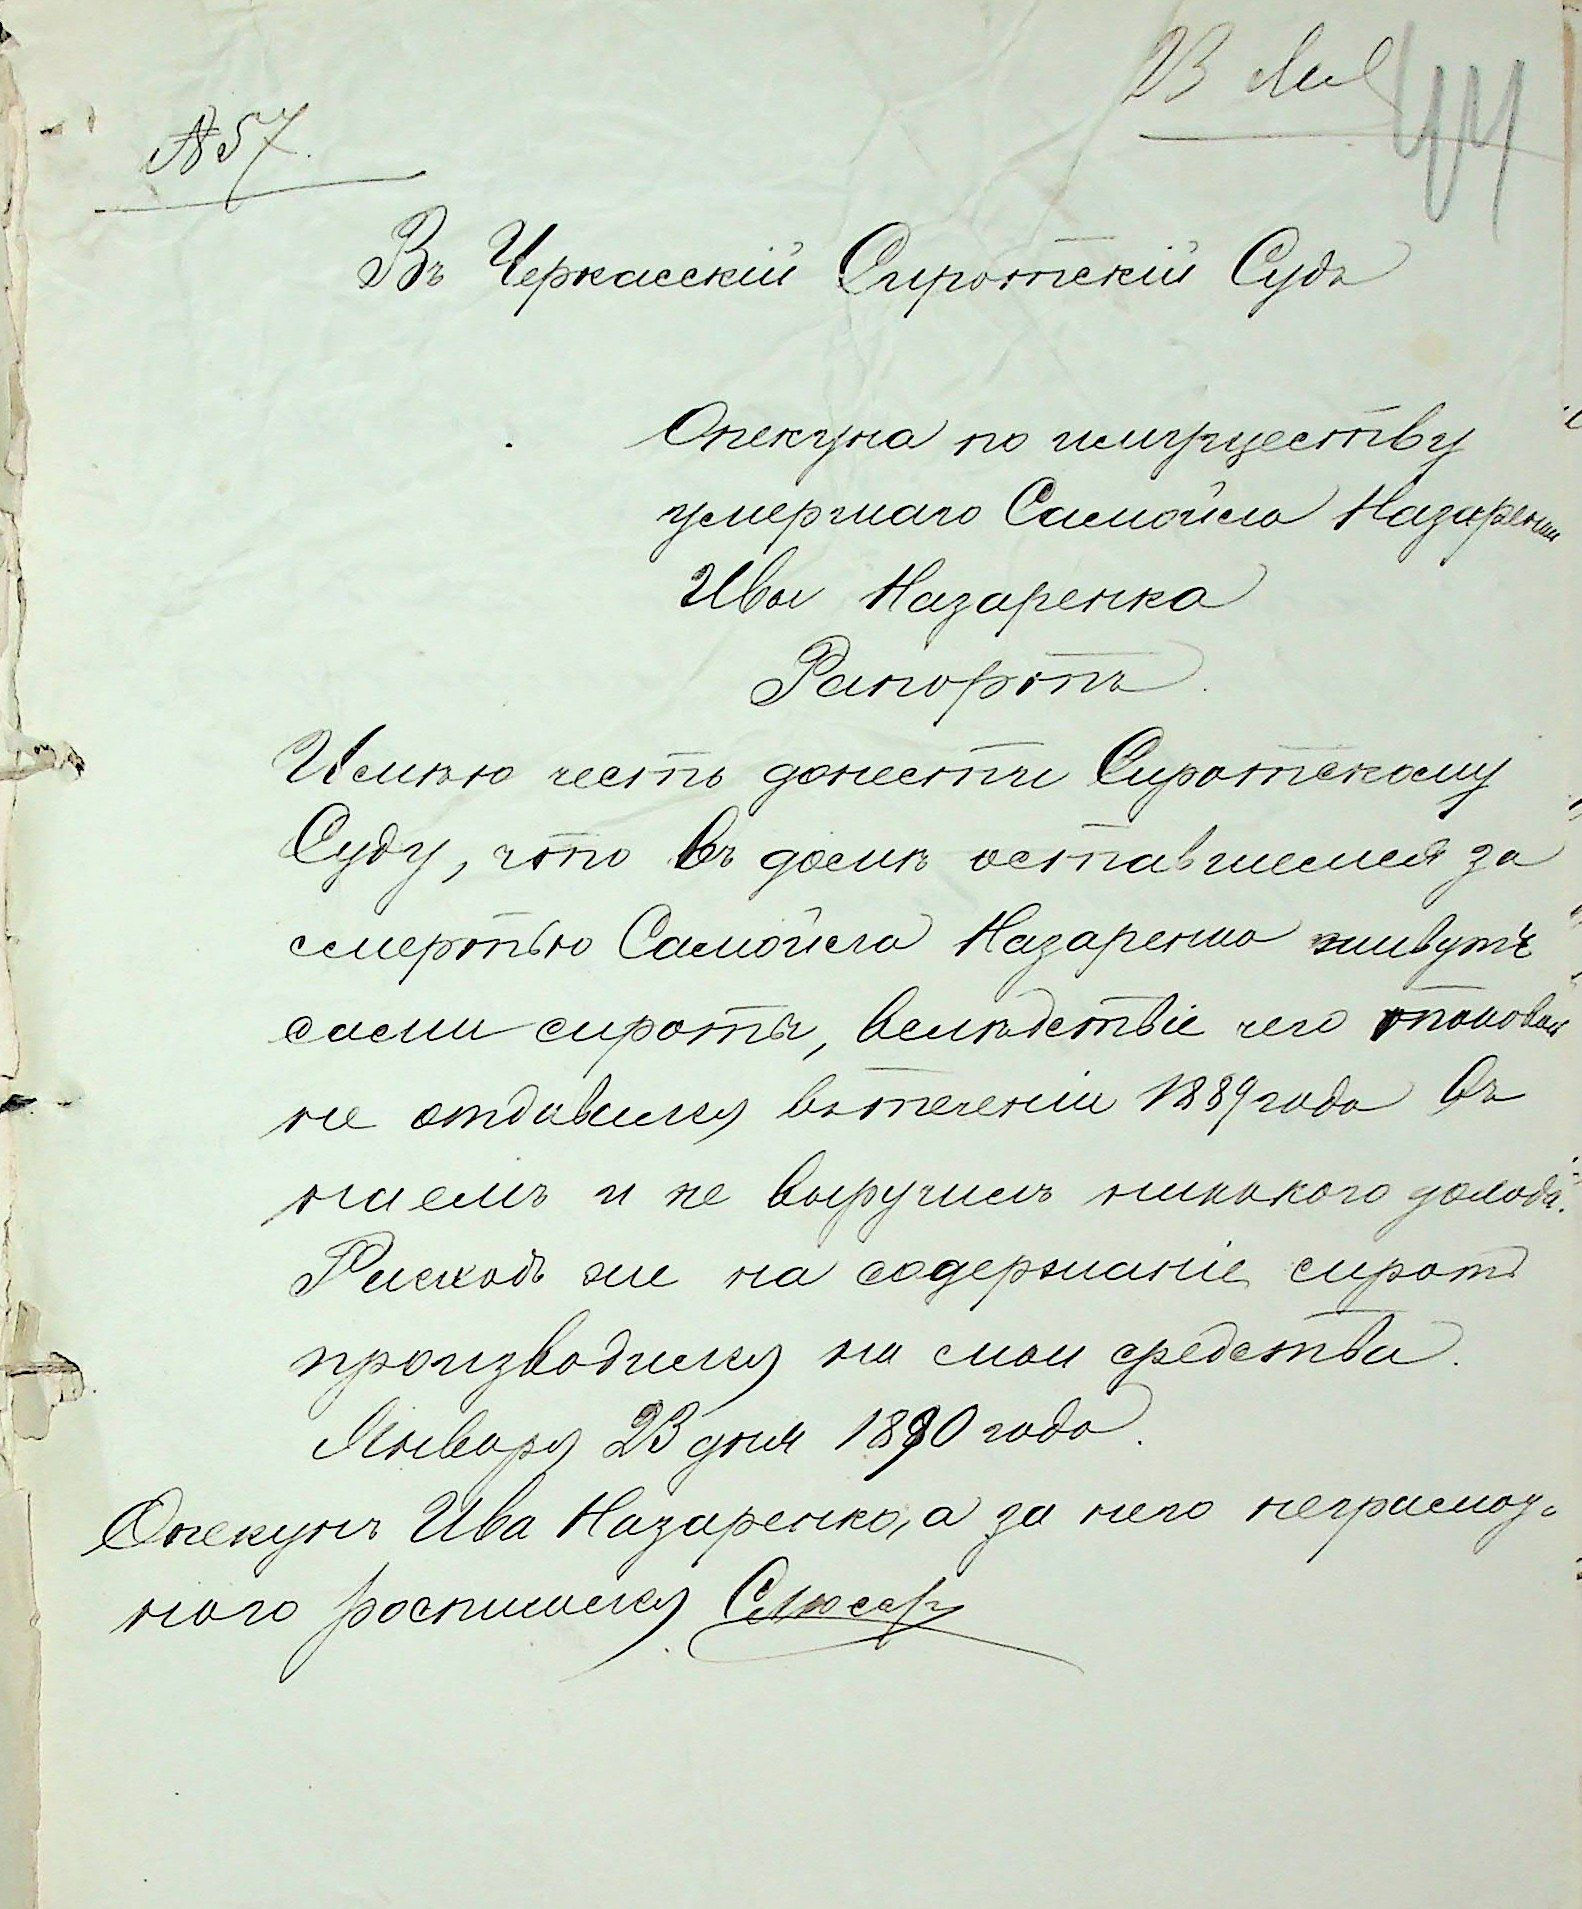 23 Янв
44
№ 57.
Въ Черкасскій Сиротскій Судъ
Опекуна по имуществу
умершаго Самойла Назаренки
Ивы Назаренка
Рапортъ.
Имѣю честь донести Сиротскому
Суду, что въ домѣ оставшемся за
смертью Самойла Назаренка живутъ
сами сироты, вслѣдствіе чего таковой
не отдавался втеченіи 1889 года въ
наемъ и не выручилъ никакого дохода.
Расходъ же на содержаніе сиротъ
производился на мои средства.
Января 23 дня 1890 года.
Опекунъ Ива Назаренко, а за него неграмот-
наго росписался Слюсарь